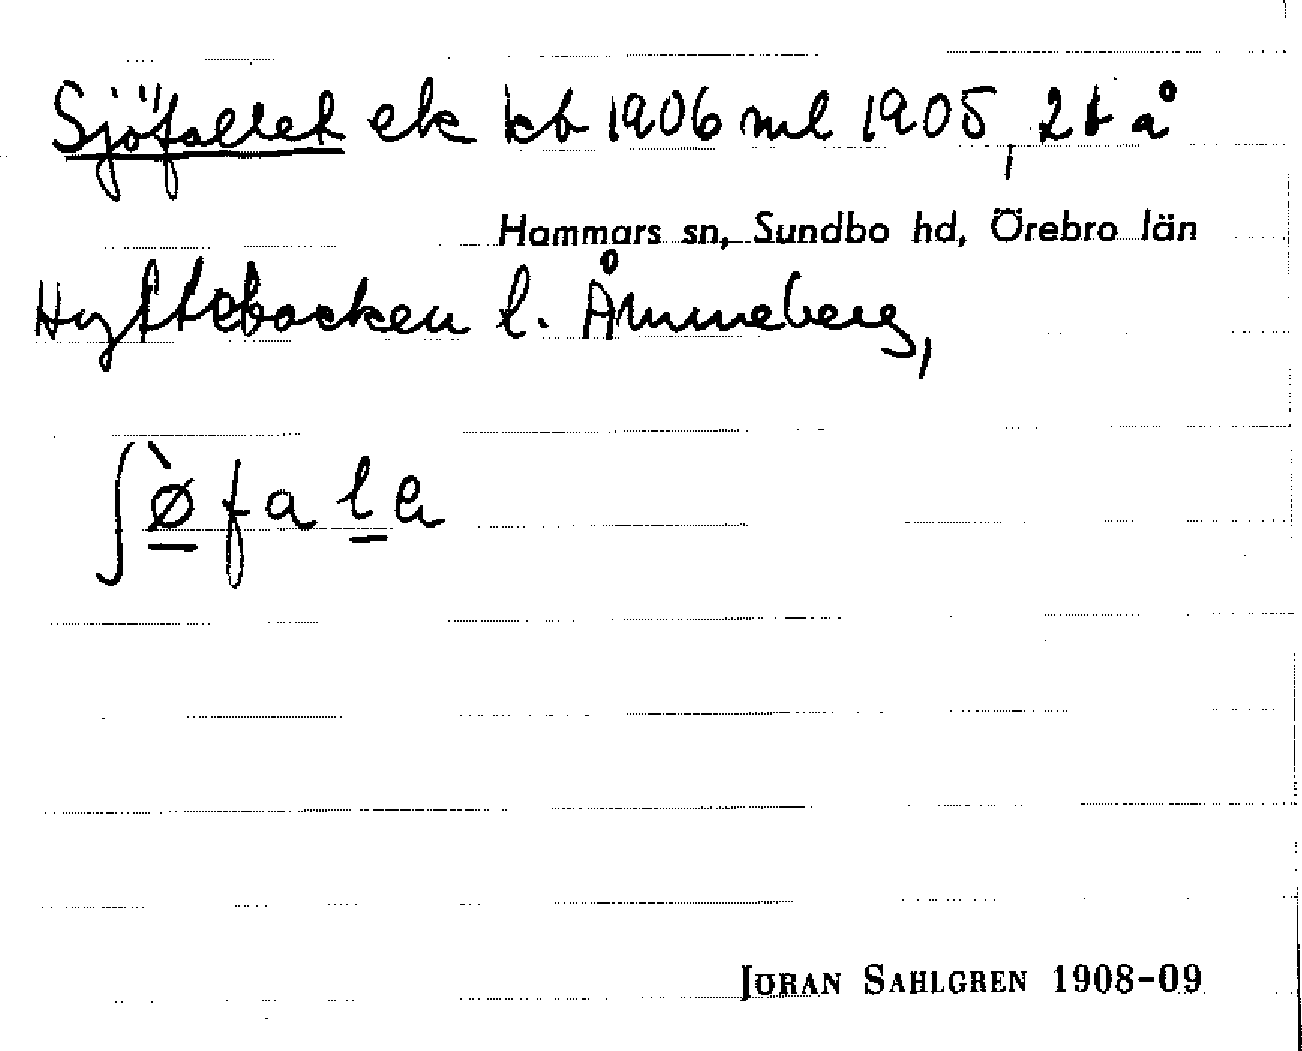 Sjöfallet elr kb 1906 ml 1905, 2t å
Hammars sn, Sundbo hd, Örebro län
Hyttebacken l. Åmmeberg,
ʃø̀fala
JÖRAN SAHLGREN 1908-09